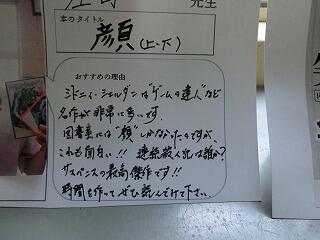 先生
本のタイトル
顔(上・下)
おすすめの理由
シドニィ・シェルダンは"ゲームの達人"など
名作が非常に多いです。
図書室には"顔"しかなかったのですが、
これも面白い!! 連続殺人犯は誰か?
サスペンスの最高傑作です!!
時間を作ってぜひ読んでみて下さい。